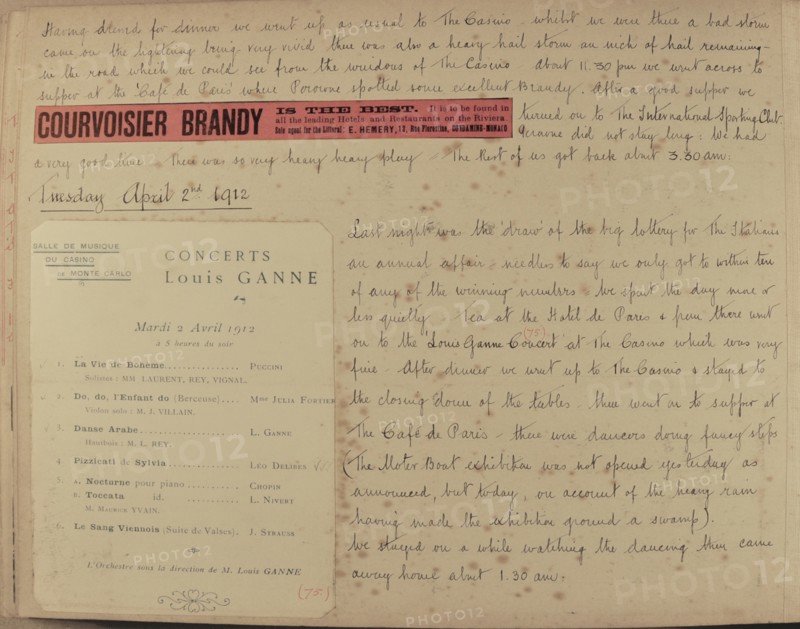 Having dressed for dinner we went up as usual to The Casino - whilst we were there a bad storm
came on the lightening being very vivid there was also a heavy hail storm an inch of hail remaining
in the road which we could see from the windows of The Casino - about 11.30 pm we went across to
supper at the 'Café de Paris' where spotted some excellent Brandy. After a good supper we
COURVOISIER BRANDY IS THE BEST. It is to be found in
all the leading Hotels and Restaurants on the Riviera
Sole agent for the Littoral: E. HEMERY, 12, Rue Florestine, CONDAMINE-MONACO
turned on to The International Sporting Club
did not stay long: We had
a very good time - There was so very heavy heavy play - The Rest of us got back about 3.30 am:
Tuesday April 2nd 1912
SALLE DE MUSIQUE
DU CASINO
DE MONTE CARLO
CONCERTS
Louis GANNE
Mardi 2 Avril 1912
à 5 heures du soir
1. La Vie de Bohème PUCCINI
Solistes: MM. LAURENT, REY, VIGNAL.
2. Do, do, l'Enfant do (Berceuse) Mme JULIA FORTIER
Violon solo: M. J. VILLAIN.
3. Danse Arabe L. GANNE
Hautbois: M. L. REY
4. Pizzicati de Sylvia LÉO DELIBES
5. A. Nocturne pour piano CHOPIN
B. Toccata id. L. NIVERT
M. MAURICE YVAIN.
6. Le Sang Viennois (Suite de Valses). J. STRAUSS
L'Orchestre sous la direction de M. Louis GANNE
(75)
Last night was the 'draw' of the big lottery for The Italians
an annual affair - needless to say we only got to within ten
of any of the winning numbers. We spent the day more or
less quietly - Tea at the Hotel de Paris & from there went
(75)
on to the 'Louis Ganne Concert at The Casino which was very
fine - After dinner we went up to The Casino & stayed to
the closing down of the tables - then went on to supper at
The Café de Paris - there were dancers doing fancy steps
(The Motor Boat exhibition was not opened yesterday as
announced, but today, on account of the heavy rain
having made the exhibition ground a swamp).
We stayed on a while watching the dancing then came
away home about 1.30 am:
PHOTO12